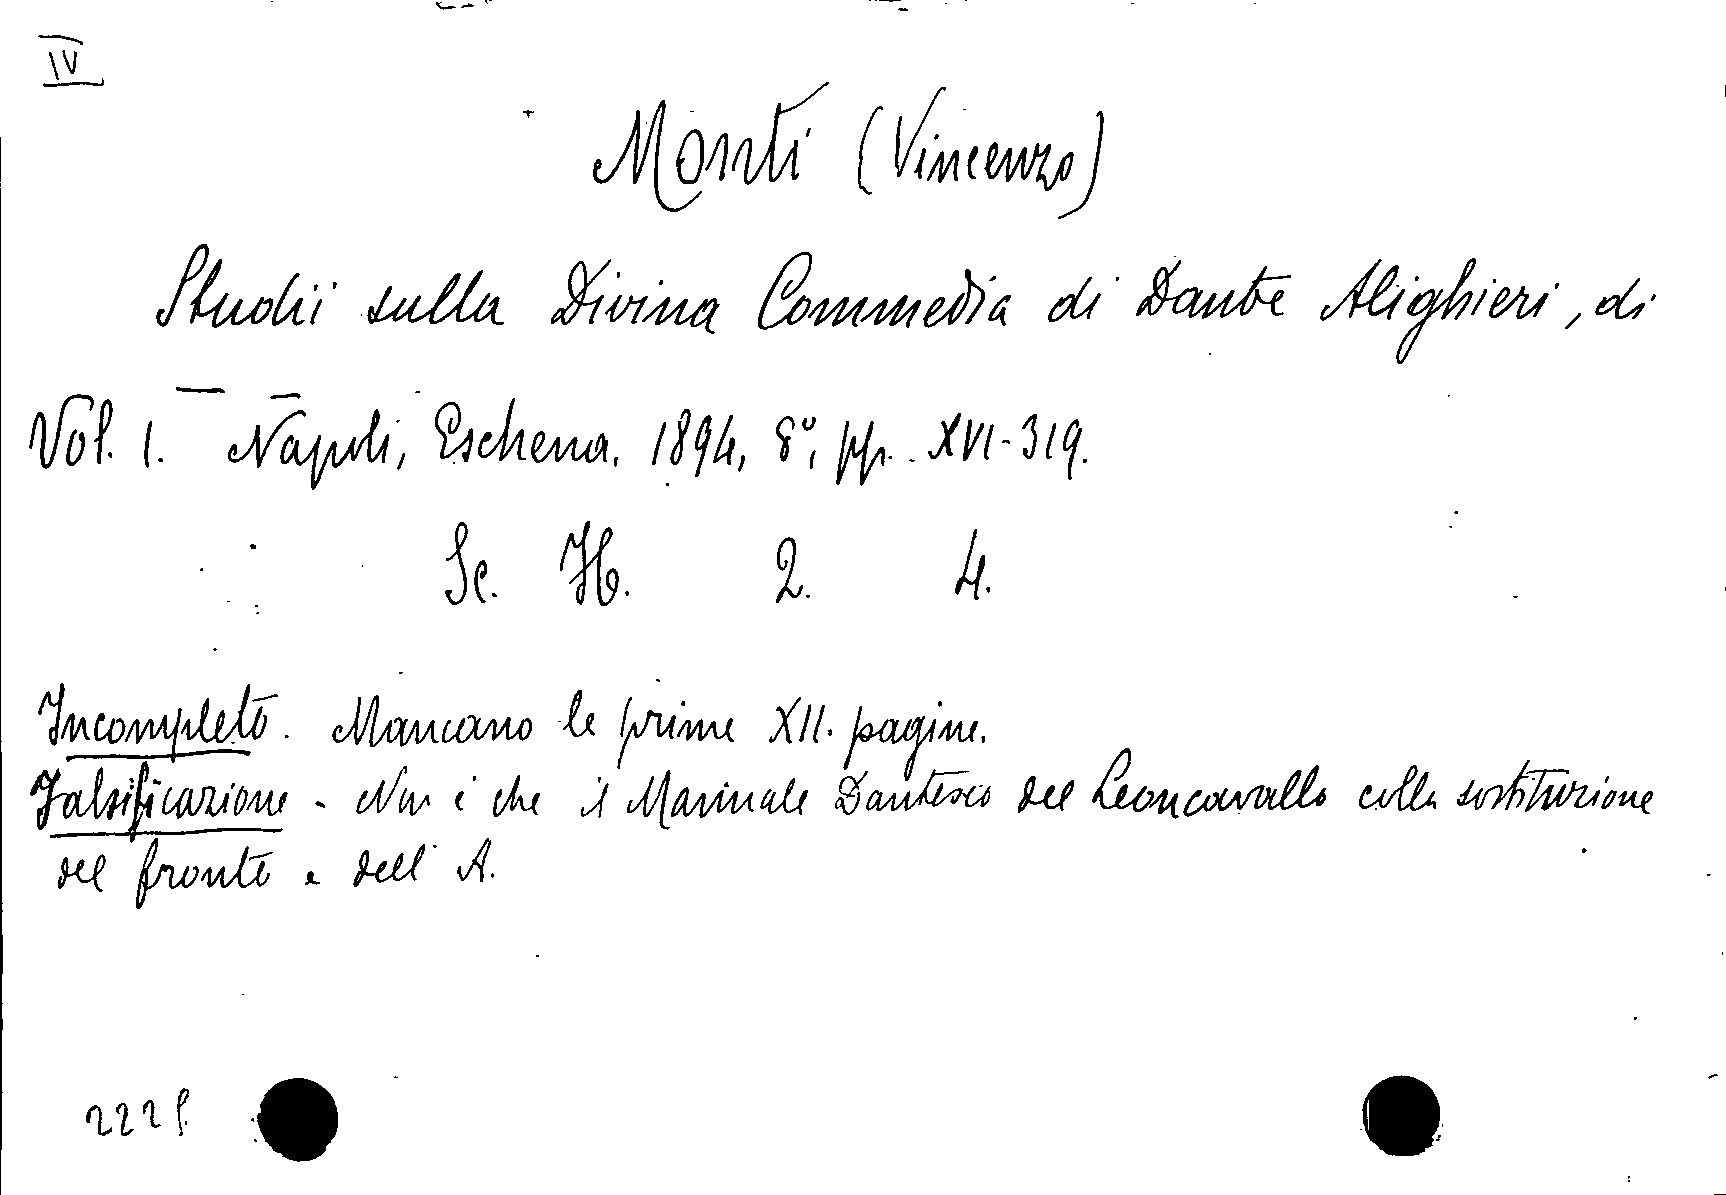 IV
Monti (Vincenzo)
Studii sulla Divina Commedia di Dante Alighieri, di
Vol. I. — Napoli, Eschena. 1894, 8°, pp. XVI-319.
Sc. H. 2. 4.
Incompleto. Mancano le prime XII. pagine.
Falsificazione - Non è che il Manuale Dantesco del Leoncavallo colla sostituzione
del fronte e dell' A.